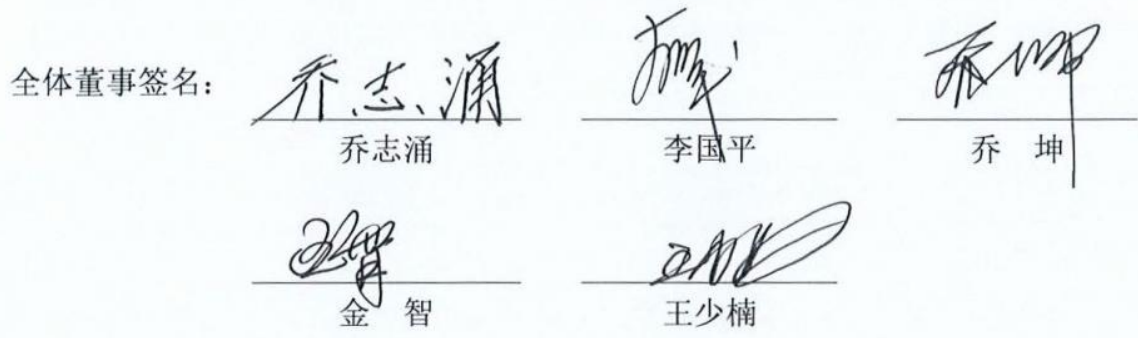 全体董事签名：
乔志涌
乔志涌 李国平 乔 坤
金 智 王少楠